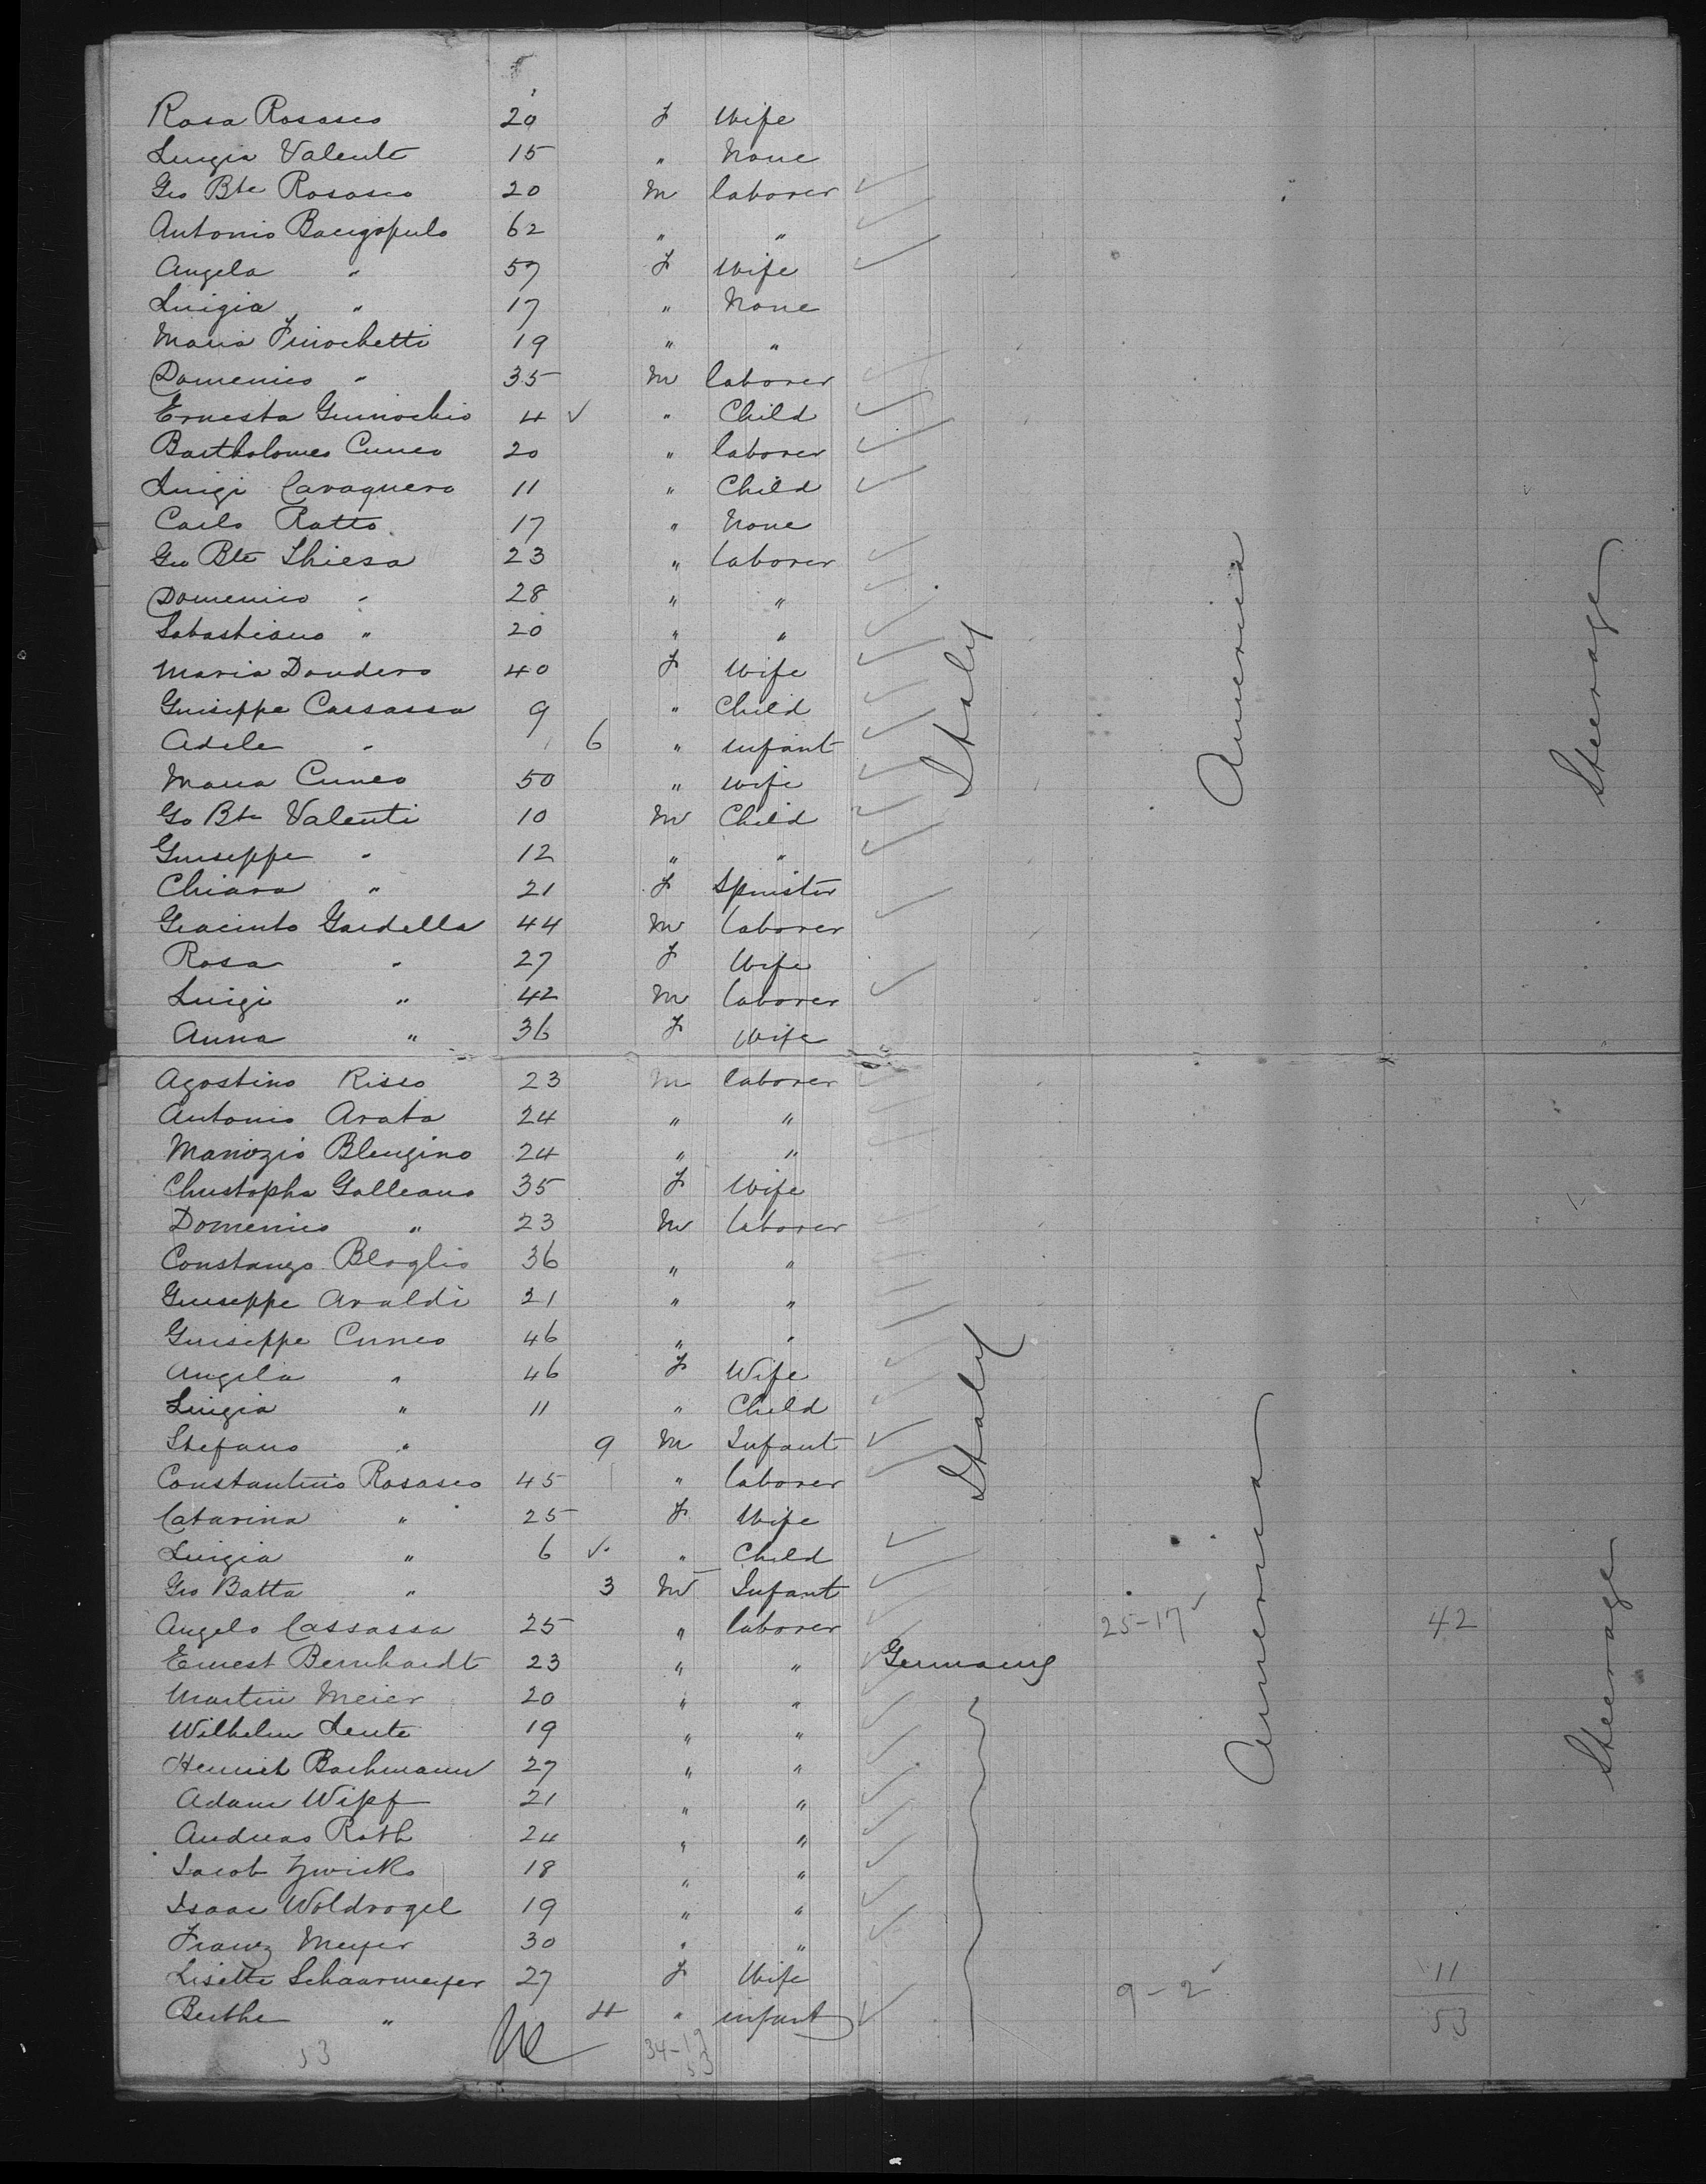 Rosa Rosasco 20 f Wife
Luigia Valente 15 " None
Gio Bte Rosasco 20 m laborer
Antonio Bacigopulo 62 " "
Angela " 57 f Wife
Luigia " 17 " None
Maria Finochetti 19 " "
Domenico " 35 m laborer
Ernesta Guinochio 4 " Child
Bartholomeo Cuneo 20 " laborer
Luigi Cavaquero 11 " Child
Carlo Ratto 17 " None
Gio Bte Shiesa 23 " laborer
Domenico " 28 " "
Sabastiano " 20 " "
Maria Dondero 40 f Wife
Guiseppe Cassassa 9 " Child
Adele " 6 " infant
Maria Cuneo 50 " wife
Go Bte Valenti 10 m Child
Guiseppe " 12 " "
Chiara " 21 f Spinster
Giacinto Gardella 44 m laborer
Rosa " 27 f Wife
Luigi " 42 m laborer
Anna " 36 f Wife
Italy America Steerage
Agostino Risso 23 m laborer
Antonio Arata 24 " "
Mariozio Blengino 24 " "
Christopha Galleano 35 f Wife
Domenico " 23 m laborer
Constanzo Bloglio 36 " "
Guiseppe Araldi 21 " "
Guiseppe Cuneo 46 " "
Angela " 46 f Wife
Luigia " 11 " Child
Stefano " 9 m Infant
Constantino Rosasco 45 " laborer
Catarina " 25 f Wife
Luigia " 6 " Child
Gio Batta " 3 m Infant
Angelo Cassassa 25 " laborer 25-17 42
Italy America Steerage
Ernest Bernhardt 23 " " Germany
Martin Meier 20 " "
Wilhelm Leute 19 " "
Heinrich Bachmann 27 " "
Adam Wipf 21 " "
Andreas Roth 24 " "
Jacob Zwicko 18 " "
Isaac Woldvogel 19 " "
Franz Meyer 30 " "
Lisette Schaarmeyer 27 f Wife 9-2 11
Berthe " 4 " infant 53
53 34-19
53